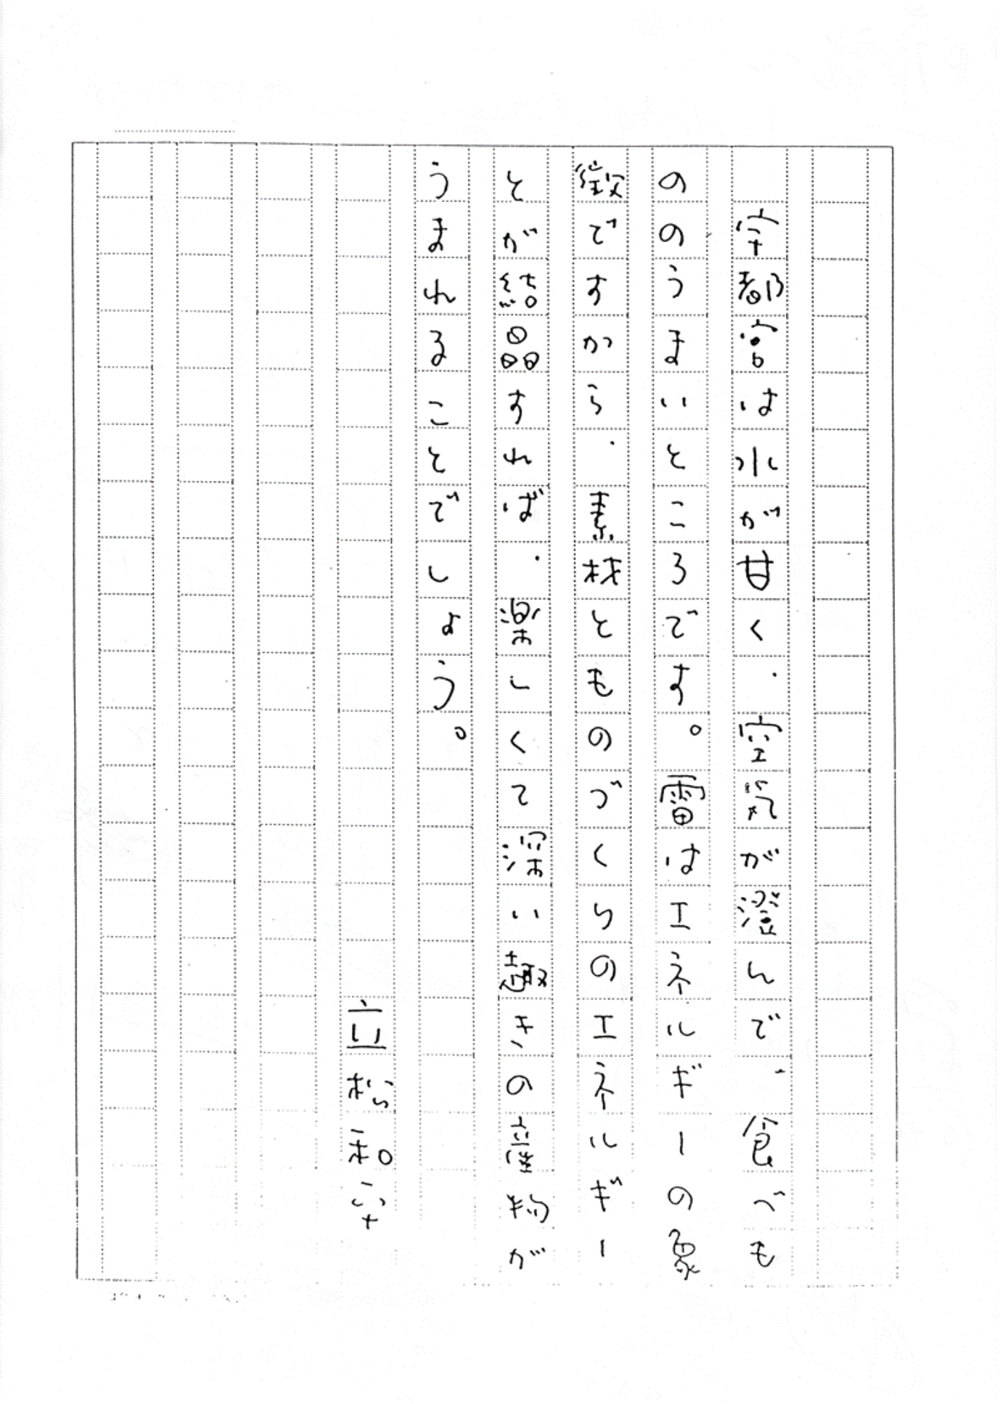 宇都宮は水が甘く、空気が澄んで、食べも
ののうまいところです。雷はエネルギーの象
徴ですから、素材とものづくりのエネルギー
とが結晶すれば、楽しくて深い趣きの産物が
うまれることでしょう。
立松和平